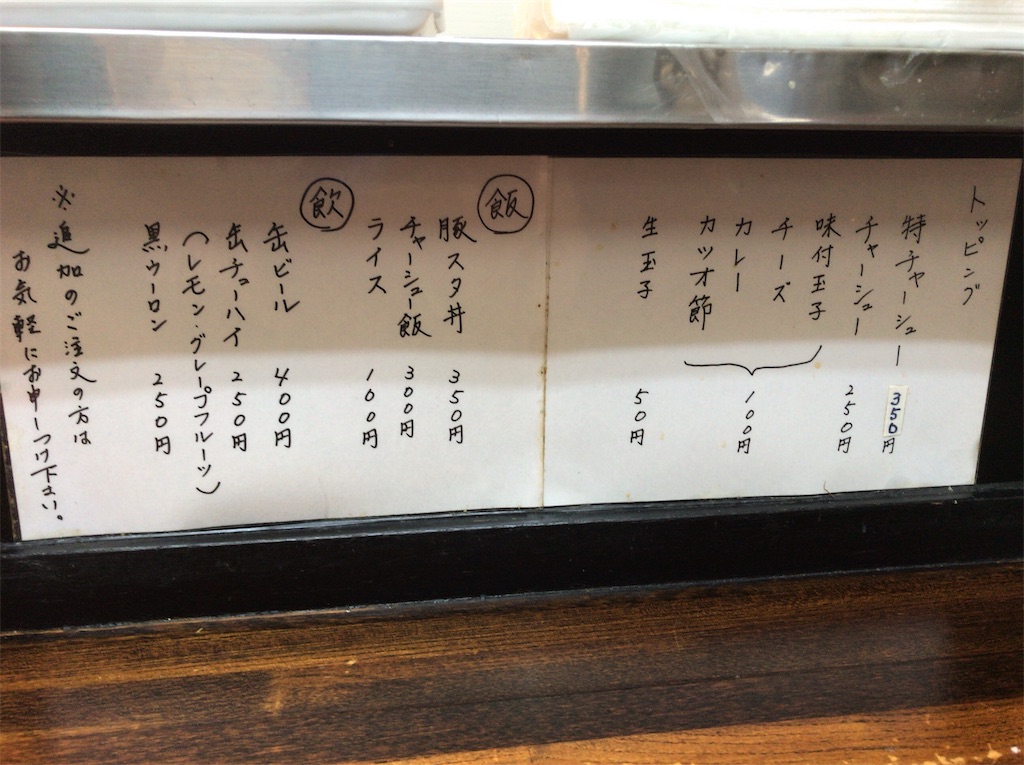 トッピング
特チャーシュー 350円
チャーシュー 250円
味付玉子
チーズ
カレー
カツオ節
100円
生玉子 50円
飯
豚スタ丼 350円
チャーシュー飯 300円
ライス 100円
飲
缶ビール 400円
缶チューハイ 250円
(レモン・グレープフルーツ)
黒ウーロン 250円
※追加のご注文の方は
お気軽にお申しつけ下さい。